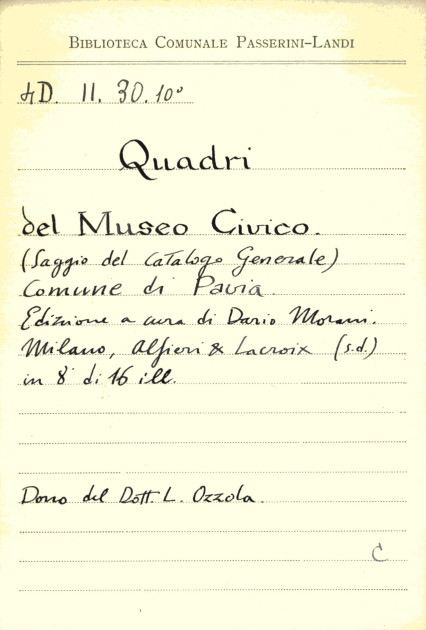 BIBLIOTECA COMUNALE PASSERINI-LANDI
4D. II. 30. 10°
Quadri
del Museo Civico.
(Saggio del Catalogo Generale)
Comune di Pavia.
Edizione a cura di Dario Morani.
Milano, Alfieri & Lacroix (s.d.)
in 8° di 16 ill.
Dono del Dott. L. Ozzola.
C